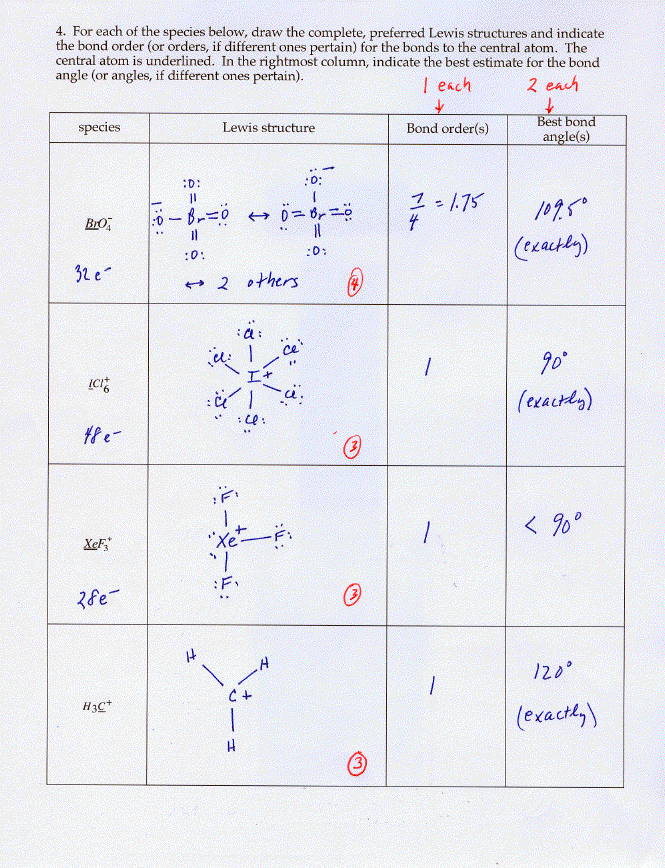 4. For each of the species below, draw the complete, preferred Lewis structures and indicate
the bond order (or orders, if different ones pertain) for the bonds to the central atom. The
central atom is underlined. In the rightmost column, indicate the best estimate for the bond
angle (or angles, if different ones pertain).
1 each 2 each
species Lewis structure Bond order(s) Best bond
angle(s)
:O: :O:
BrO₄⁻ :O – Br = O ↔ O = Br = O 7/4 = 1.75 109.5°
:O: :O: (exactly)
32 e⁻ ↔ 2 others 4
:Cl:
Cl: Cl
ICl₆⁺ I+ 1 90°
:Cl Cl: (exactly)
48 e⁻ :Cl: 3
:F:
XeF₃⁺ Xe+ — F: 1 < 90°
:F:
28e⁻ 3
H H
H₃C⁺ C+ 1 120°
H (exactly)
3